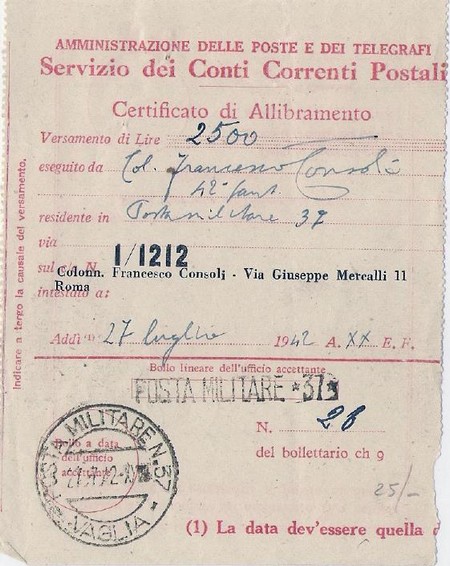 AMMINISTRAZIONE DELLE POSTE E DEI TELEGRAFI
Servizio dei Conti Correnti Postali
Certificato di Allibramento
Versamento di Lire 2500
eseguito da Col. Francesco Consoli
42º fant.
residente in Posta militare 37
via
sul c/c N. 1/1212
Colonn. Francesco Consolj - Via Giuseppe Mercalli 11
Roma
intestato a:
Addì (1) 27 luglio 1942 A. XX E. F.
Bollo lineare dell'ufficio accettante
POSTA MILITARE *37*
N. 26
del bollettario ch 9
Bollo a data
dell'ufficio
accettante
POSTA MILITARE N. 37
VAGLIA
25/-
(1) La data dev'essere quella d
Indicare a tergo la causale del versamento.